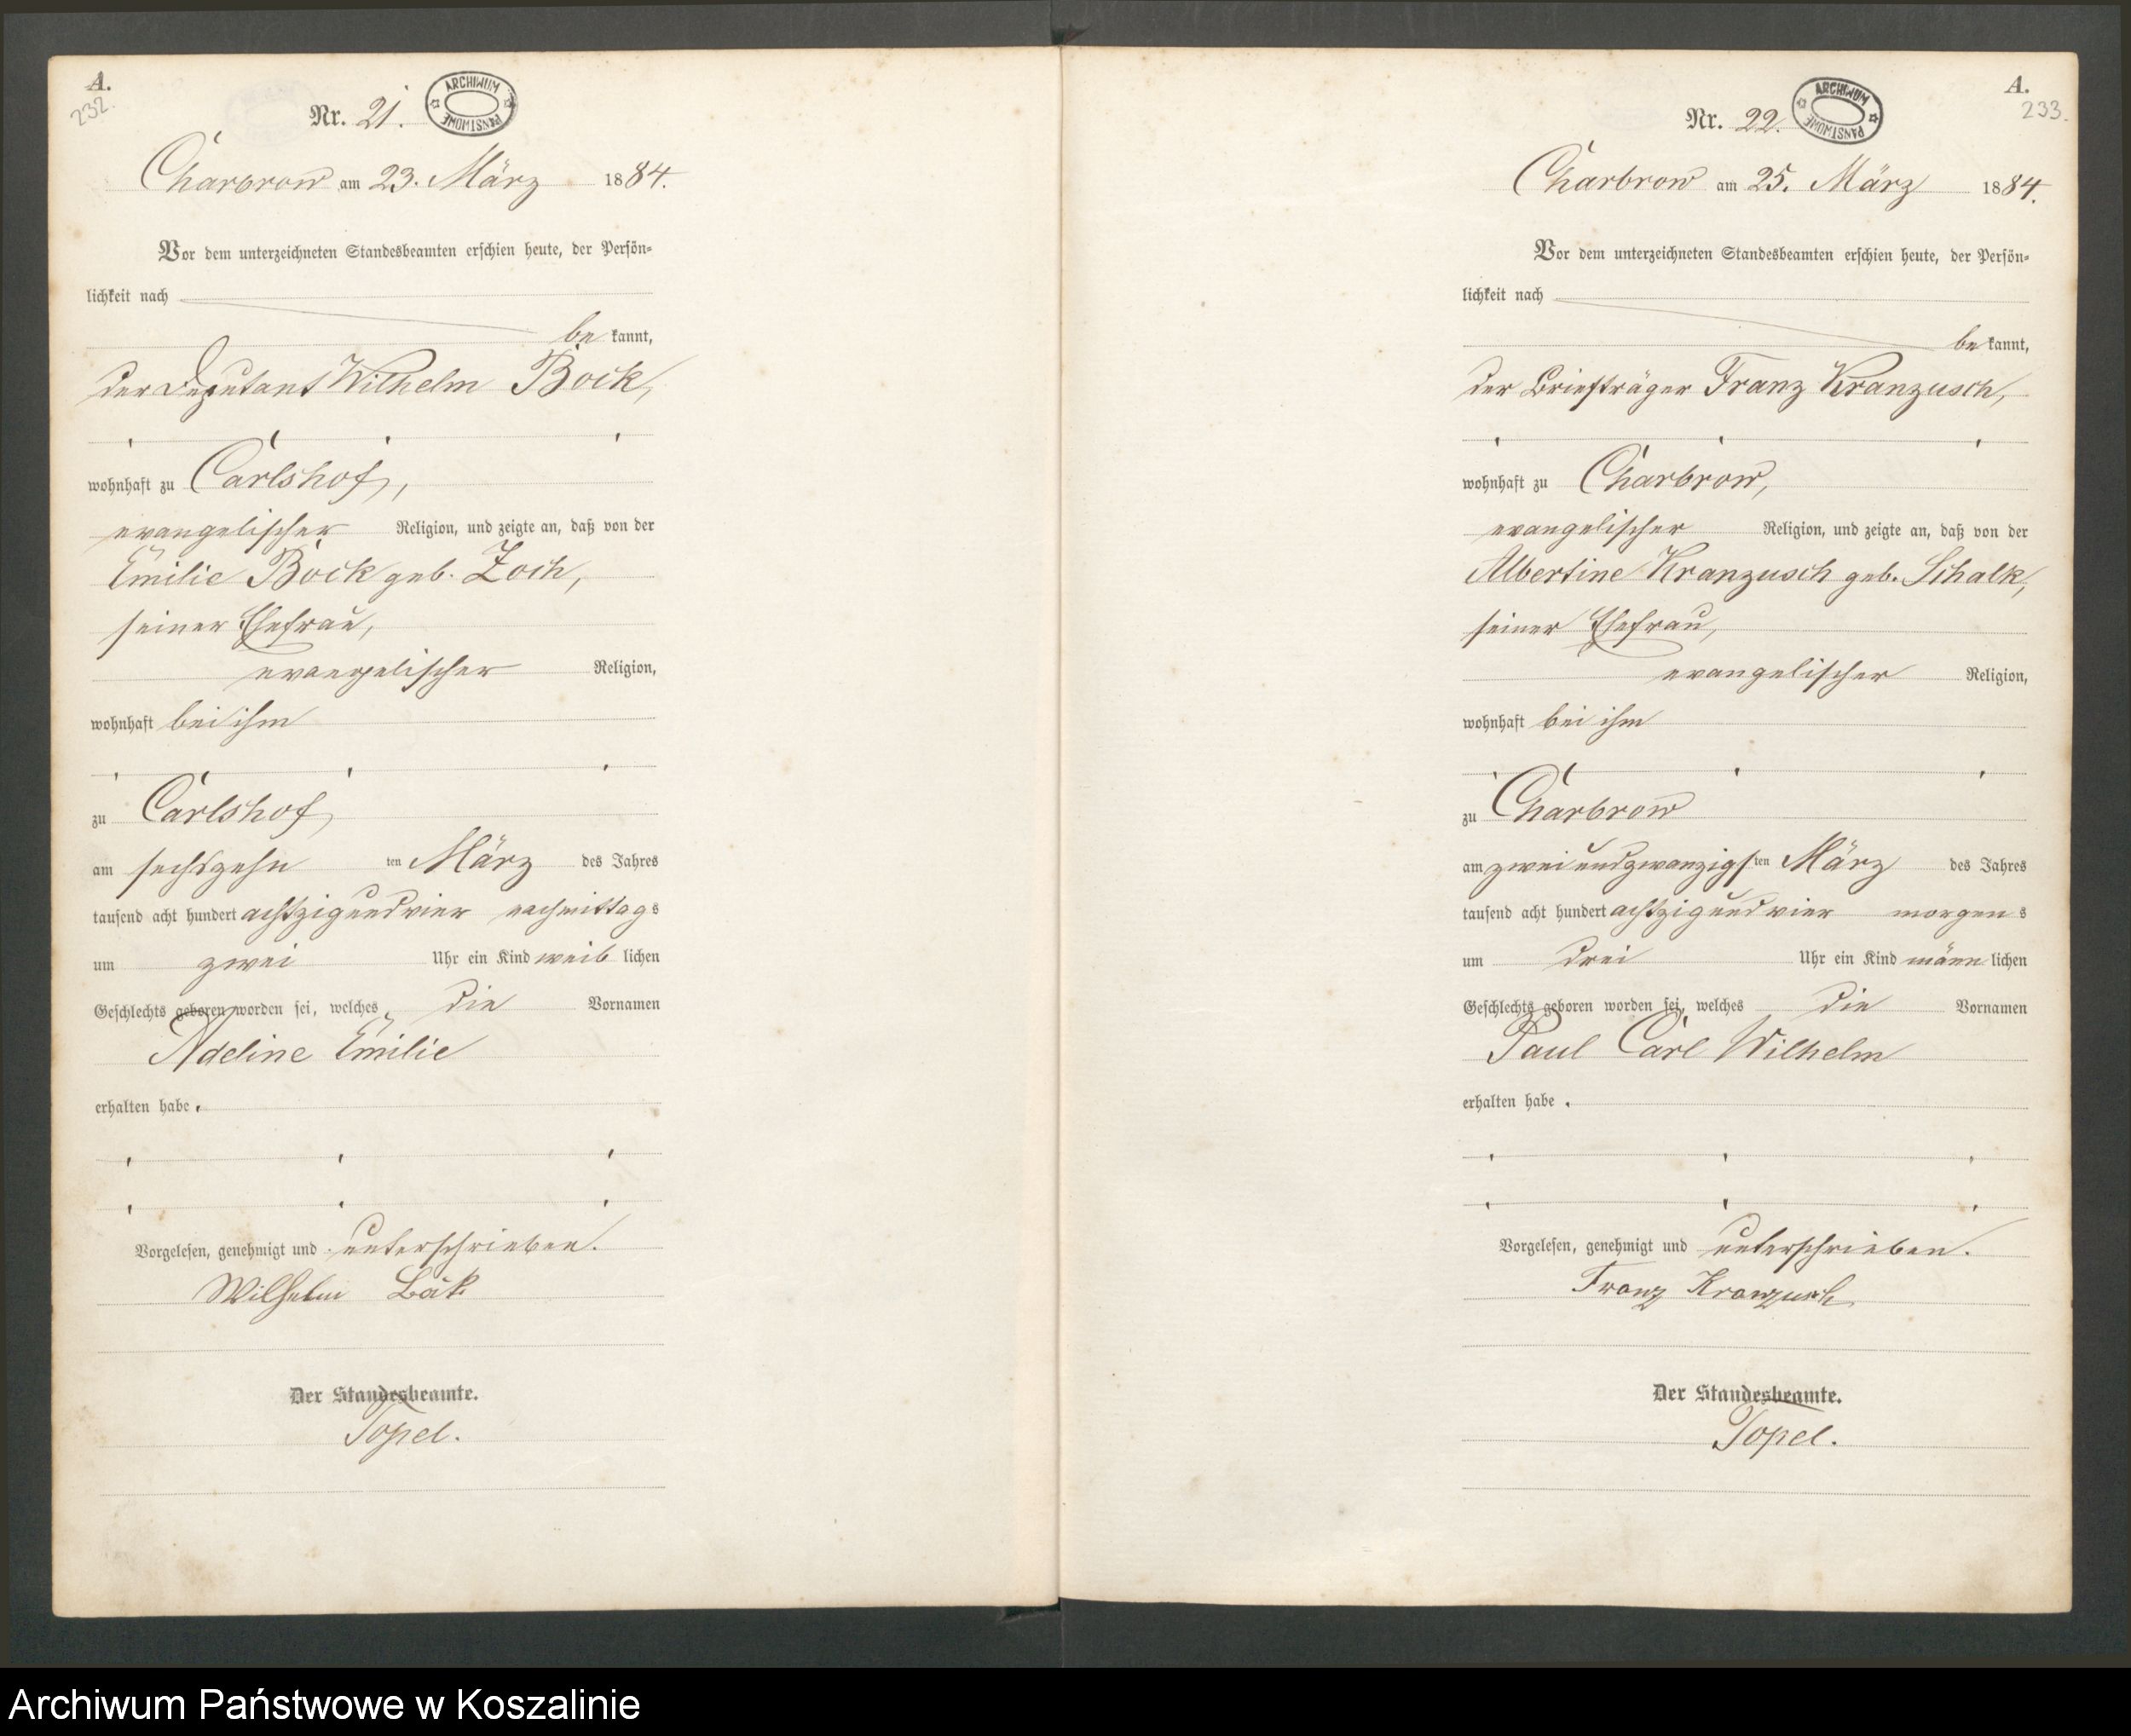 A.
232.
Nr. 21.
ARCHIWUM PAŃSTWOWE
Charbrow am 23. März 1884.
Vor dem unterzeichneten Standesbeamten erschien heute, der Persön-
lichkeit nach
be kannt,
der Deputant Wilhelm Bock,
wohnhaft zu Carlshof,
evangelischer Religion, und zeigte an, daß von der
Emilie Bock geb. Zoch,
seiner Ehefrau,
evangelischer Religion,
wohnhaft bei ihm
zu Carlshof
am sechszehn ten März des Jahres
tausend acht hundert achtzig und vier nachmittags
um zwei Uhr ein Kind weib lichen
Geschlechts geboren worden sei, welches die Vornamen
Adeline Emilie
erhalten habe.
Vorgelesen, genehmigt und unterschrieben.
Wilhelm
Der Standesbeamte.
Topel.
A.
233.
Nr. 22.
ARCHIWUM PAŃSTWOWE
Charbrow am 25. März 1884.
Vor dem unterzeichneten Standesbeamten erschien heute, der Persön-
lichkeit nach
be kannt,
der Briefträger Franz Kranzusch,
wohnhaft zu Charbrow,
evangelischer Religion, und zeigte an, daß von der
Albertine Kranzusch geb. Schalk,
seiner Ehefrau,
evangelischer Religion,
wohnhaft bei ihm
zu Charbrow
am zweiundzwanzigsten März des Jahres
tausend acht hundert achtzig und vier morgens
um drei Uhr ein Kind männ lichen
Geschlechts geboren worden sei, welches die Vornamen
Paul Carl Wilhelm
erhalten habe.
Vorgelesen, genehmigt und unterschrieben.
Franz Kranzusch
Der Standesbeamte.
Topel.
Archiwum Państwowe w Koszalinie